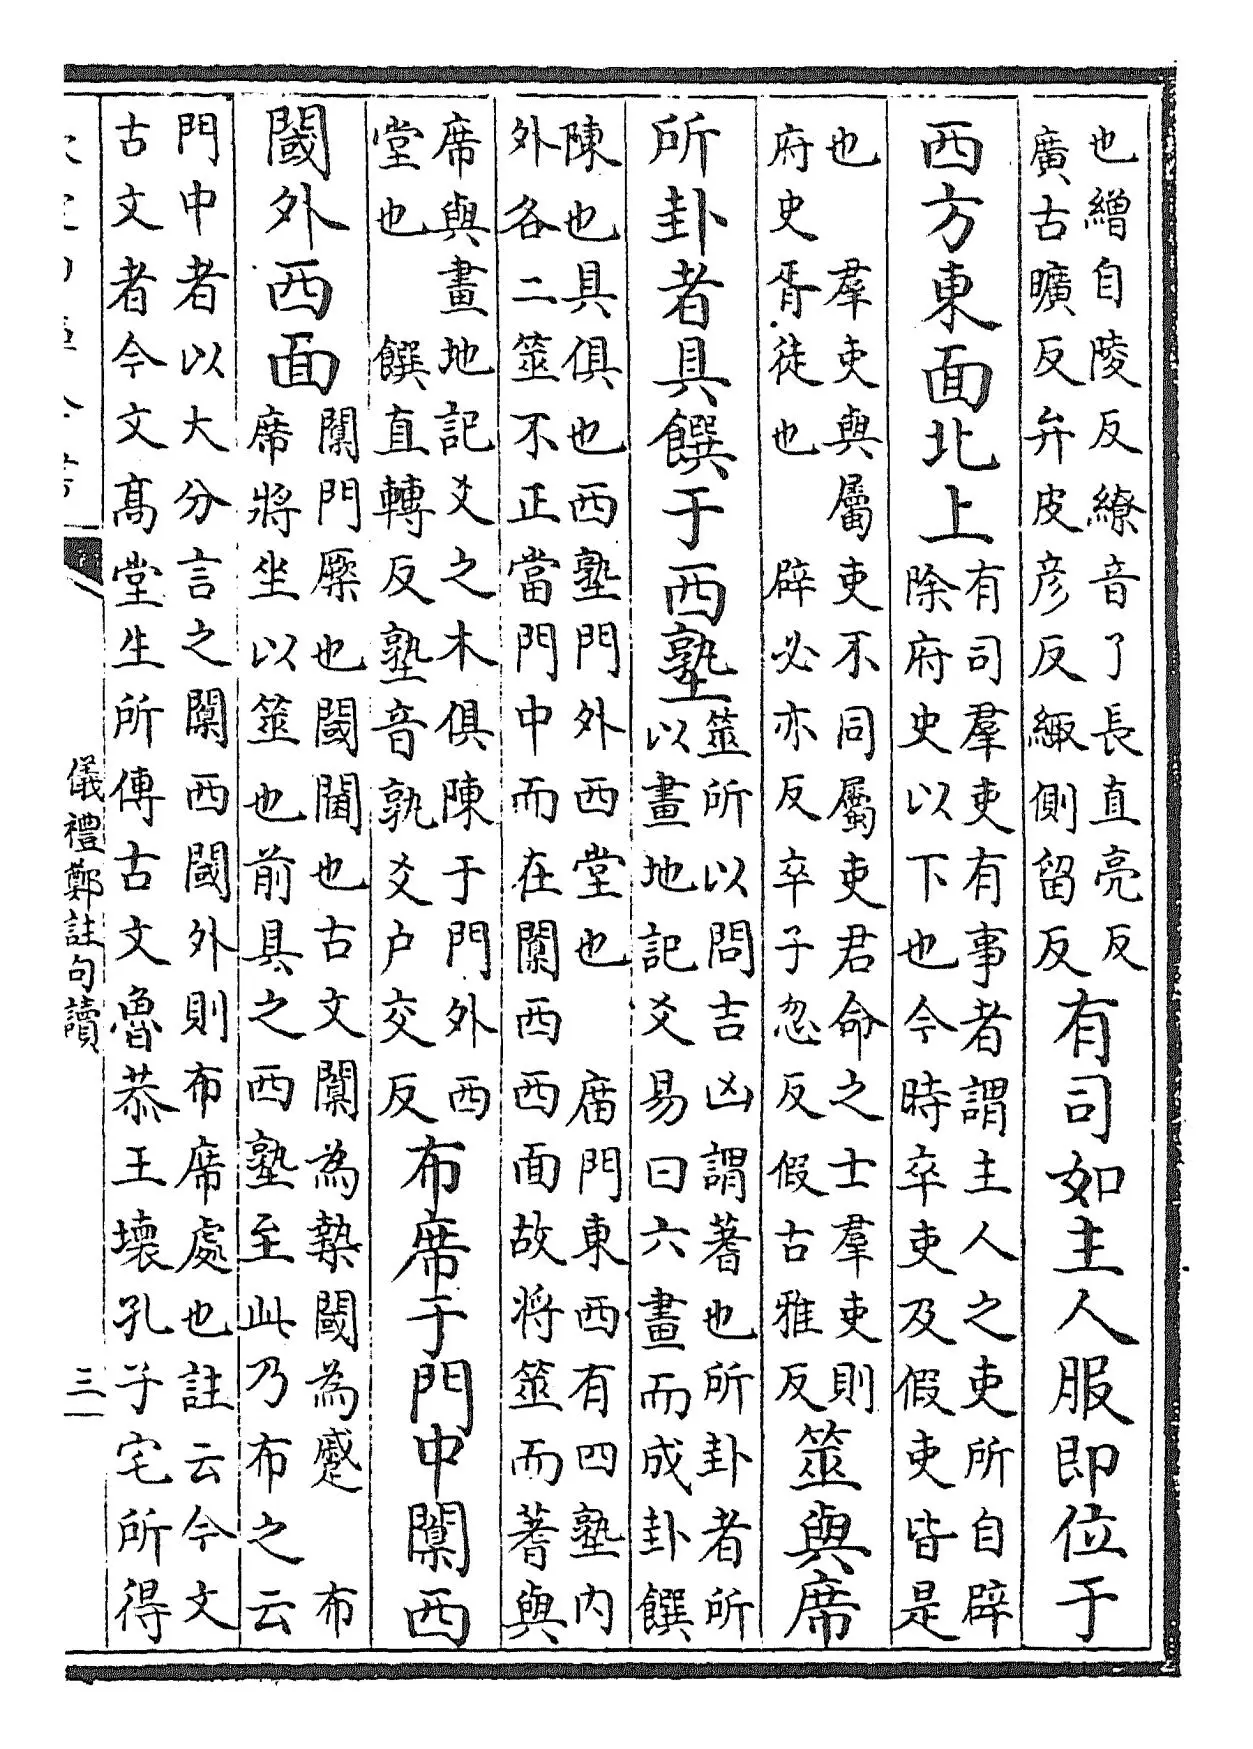 也繒自陵反繚音了長直亮反
廣古曠反弁皮彦反緅側留反
有司如主人服即位于
西方東面北上
有司羣吏有事者謂主人之吏所自辟
除府史以下也今時卒吏及假吏皆是
也　羣吏與屬吏不同屬吏君命之士羣吏則
府史胥徒也　辟必亦反卒子忽反假古雅反
筮與席
所卦者具饌于西塾
筮所以問吉凶謂蓍也所卦者所
以畫地記爻易曰六畫而成卦饌
陳也具俱也西塾門外西堂也　庿門東西有四塾内
外各二筮不正當門中而在闑西西面故將筮而蓍與
席與畫地記爻之木俱陳于門外西
堂也　饌直轉反塾音孰爻户交反
布席于門中闑西
閾外西面
闑門橜也閾閫也古文闑為槷閾為蹙　布
席將坐以筮也前具之西塾至此乃布之云
門中者以大分言之闑西閾外則布席處也註云今文
古文者今文髙堂生所傳古文魯恭王壞孔子宅所得
儀禮鄭註句讀
三